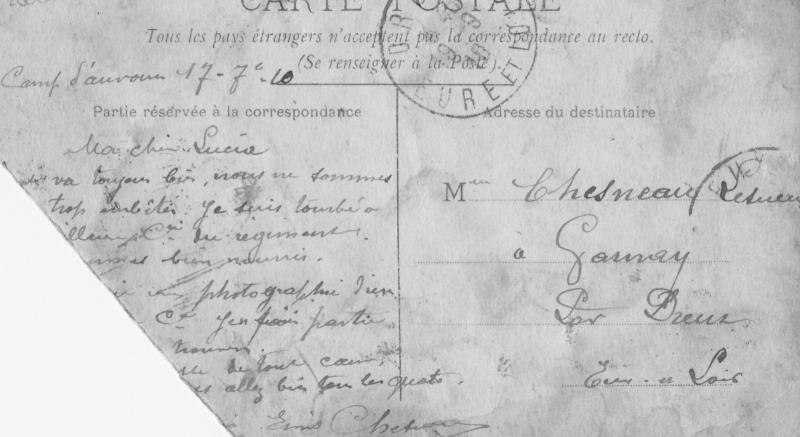 CARTE POSTALE
Tous les pays étrangers n'acceptent pas la correspondance au recto.
(Se renseigner à la Poste).
Camp d'auvours 17-7e-10
Partie réservée à la correspondance
Adresse du destinataire
EURE ET
Ma chère Lucie
va toujours bien, nous ne sommes
trop embêtés. Je suis tombé à
Cie du régiment.
bien nourris.
photographie d'un
Cie j'en fais partie
de tout cœur,
allez bien tous les quatre.
Chesneau
Mme Chesneau
à Garnay
Par Dreux
Eure et Loir